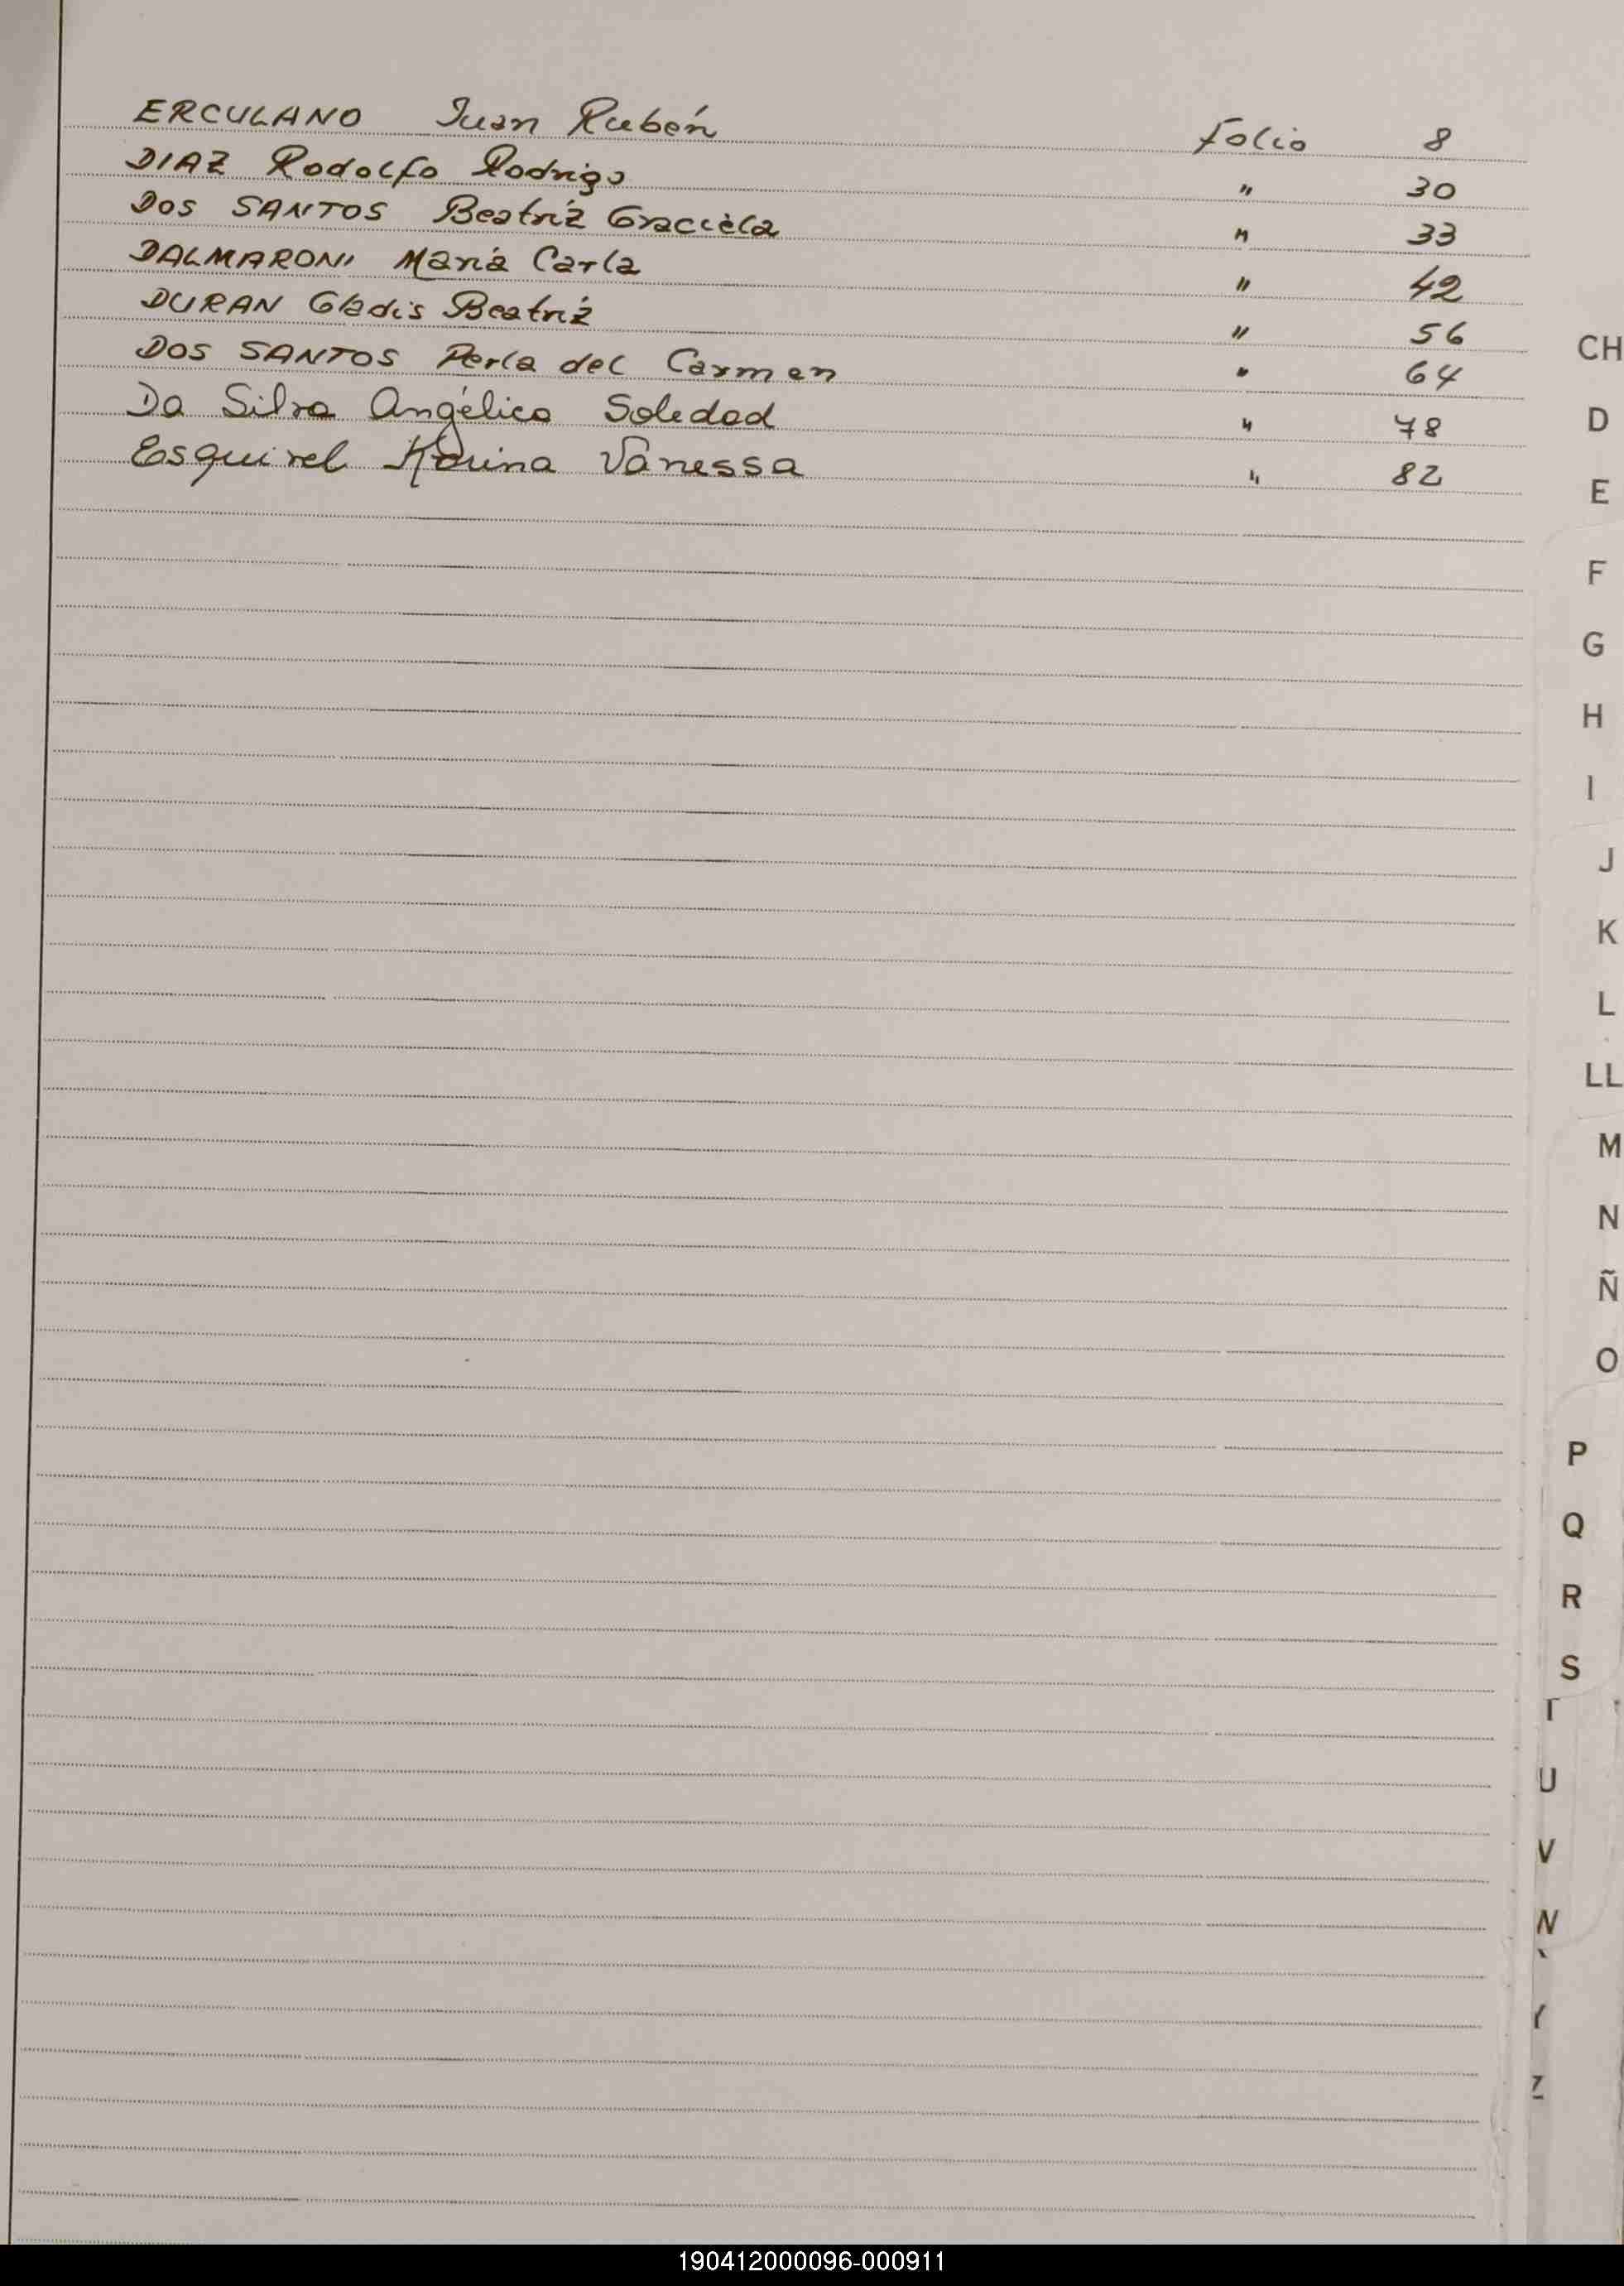 ERCULANO Juan Rubén Folio 8
DIAZ Rodolfo Rodrigo " 30
DOS SANTOS Beatríz Graciela " 33
DALMARONI María Carla " 42
DURAN Gladis Beatríz " 56
DOS SANTOS Perla del Carmen " 64
Da Silva Angélica Soledad " 78
Esquivel Karina Vanessa " 82
CH
D
E
F
G
H
I
J
K
L
LL
M
N
Ñ
O
P
Q
R
S
T
U
V
Y
Z
190412000096-000911